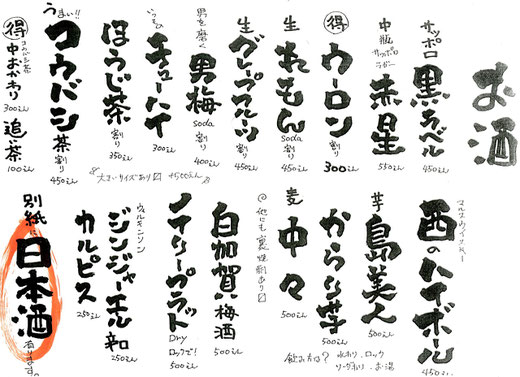 お酒
サッポロ
黒ラベル
450えん
中瓶
サッポロ
ラガー
赤星
550えん
得
ウーロン
割り
300えん
生
れもん
soda
割り
450えん
生
グレープフルーツ
割り
450えん
男を磨く
男梅
soda
割り
400えん
いつもの
チューハイ
300えん
ほうじ茶
割り
350えん
うまい!!
コウバシ茶
割り
450えん
大きいサイズあり〼 +500えん
得
コウバシ茶
中おかわり
300えん
追い茶
100えん
マルスウイスキー
西のハイボール
450えん
芋
島美人
500えん
からり芋
500えん
飲み方は?
水わり、ロック
ソーダわり、お湯
麦
中々
500えん
@他にも裏焼酎あり〼
白加賀
梅酒
500えん
ノイリープラット
Dry
ロックで!
500えん
ウィルキンソン
ジンジャーエール 辛
250えん
カルピス
250えん
別紙に
日本酒
有ります。